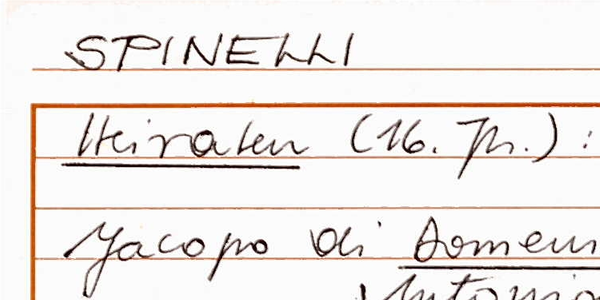 SPINELLI
Heiraten (16. Jh.) :
Jacopo di Domeni
Antonio